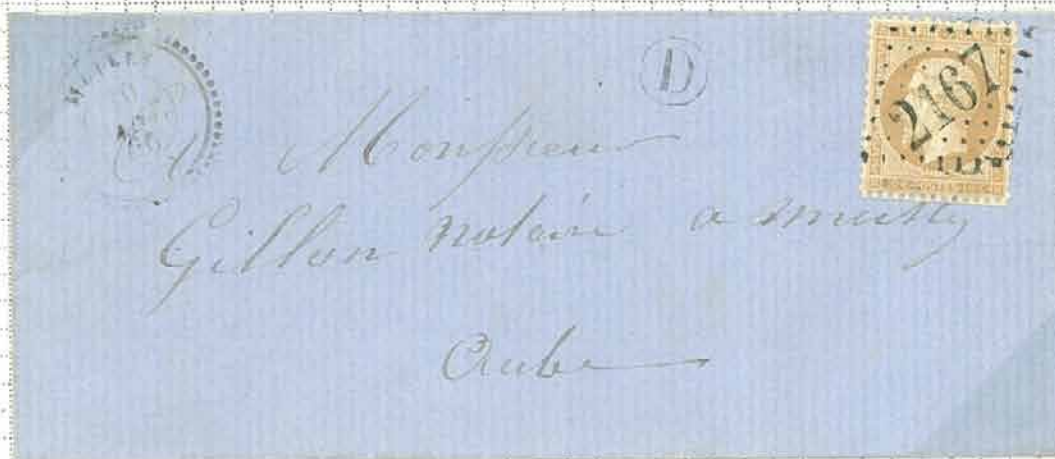 D
2167
Monsieur
Gillon notaire a mussy
Aube